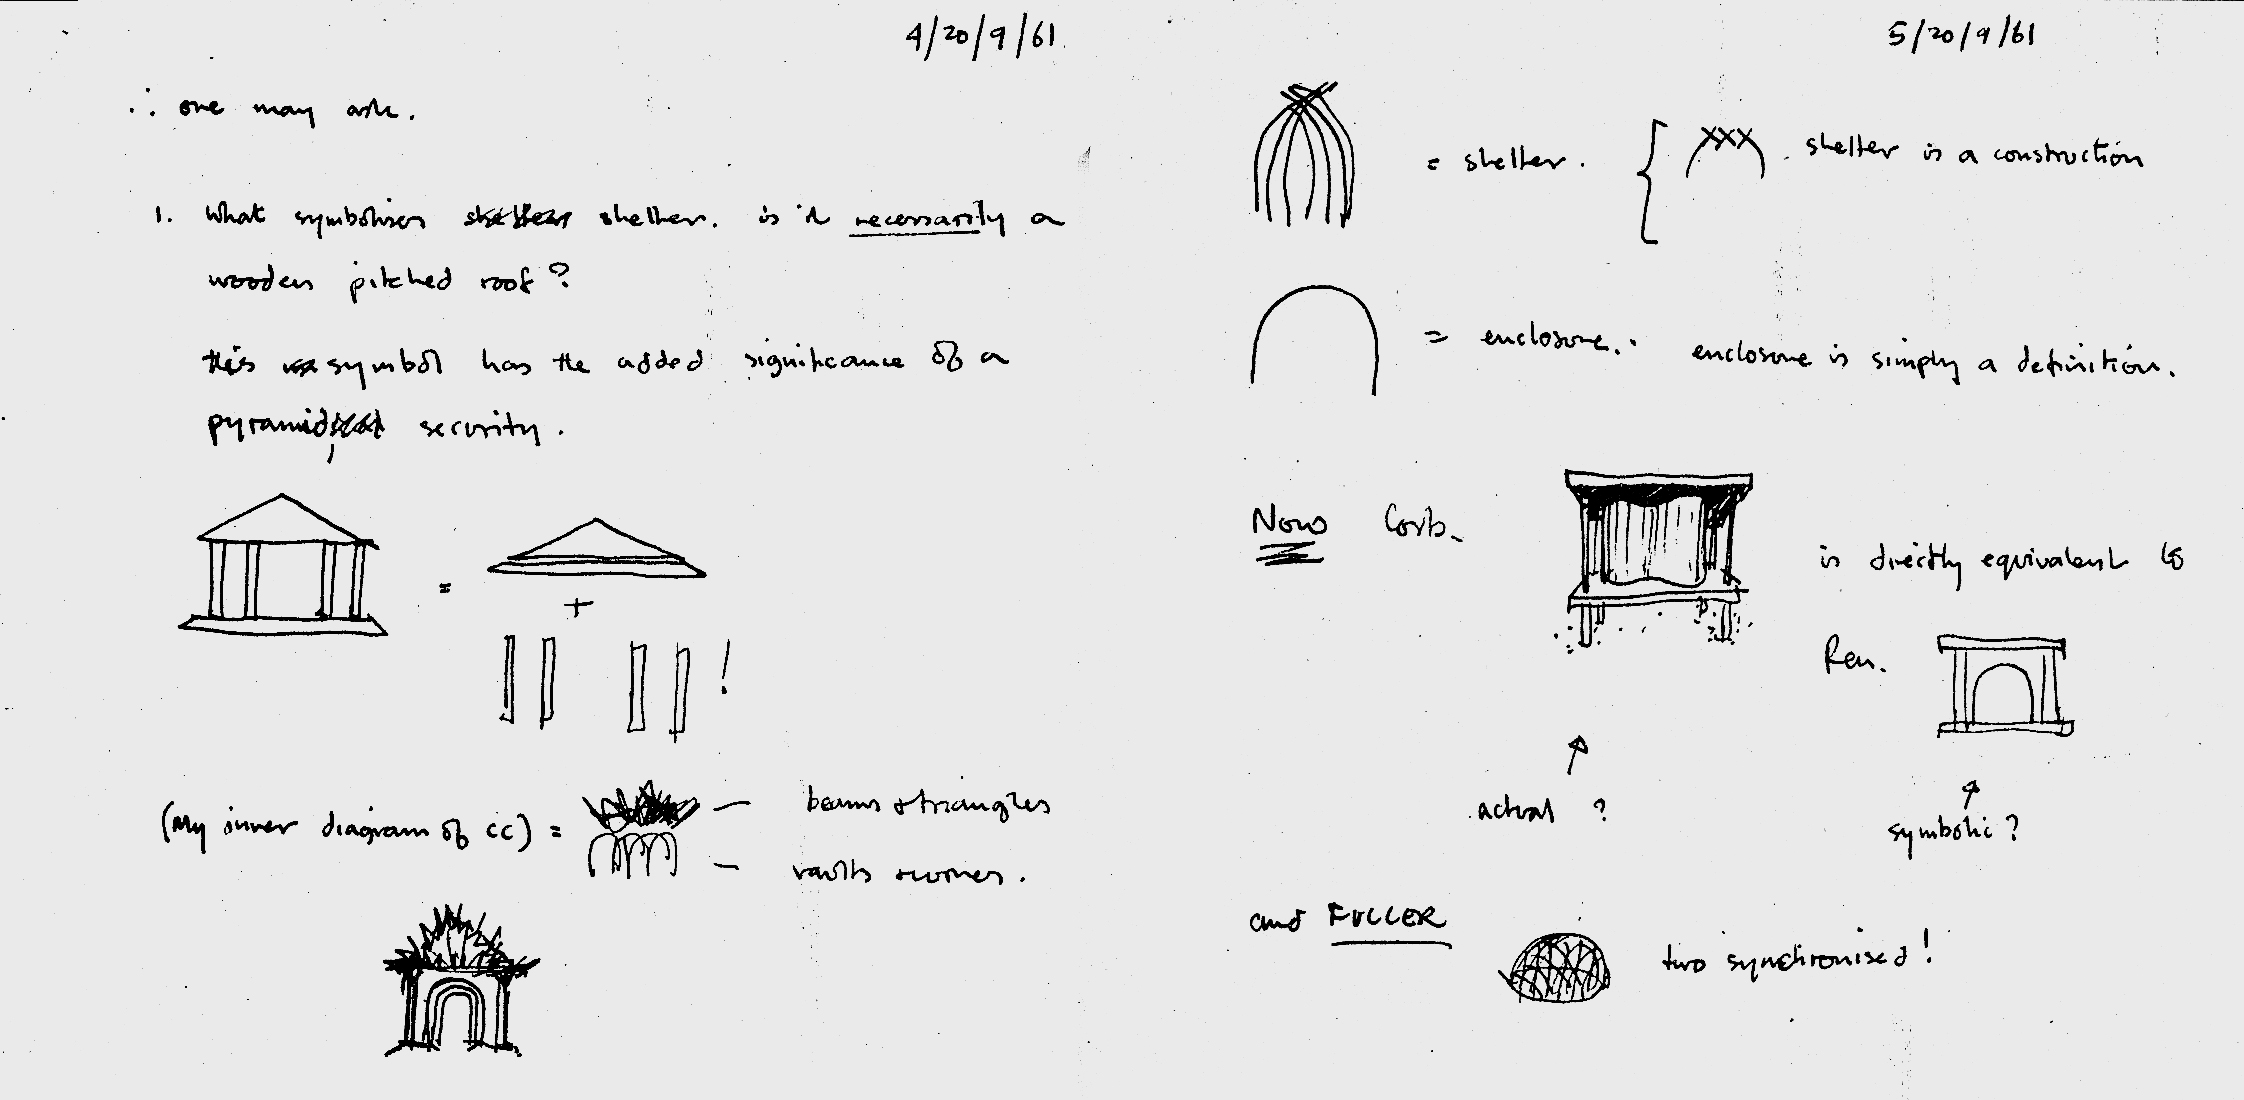 4/20/9/61
∴ one may ask.
1. What symbolises shelter. is it necessarily a
wooden pitched roof?
this symbol has the added significance of a
pyramid, security.
=
+
!
(My inner diagram of cc) =
— beams + triangles
— vaults + curves.
5/20/9/61
= shelter. { shelter is a construction
= enclosure. enclosure is simply a definition.
Now Corb.
is directly equivalent to
Ren.
actual ?
symbolic ?
and FULLER two synchronised!